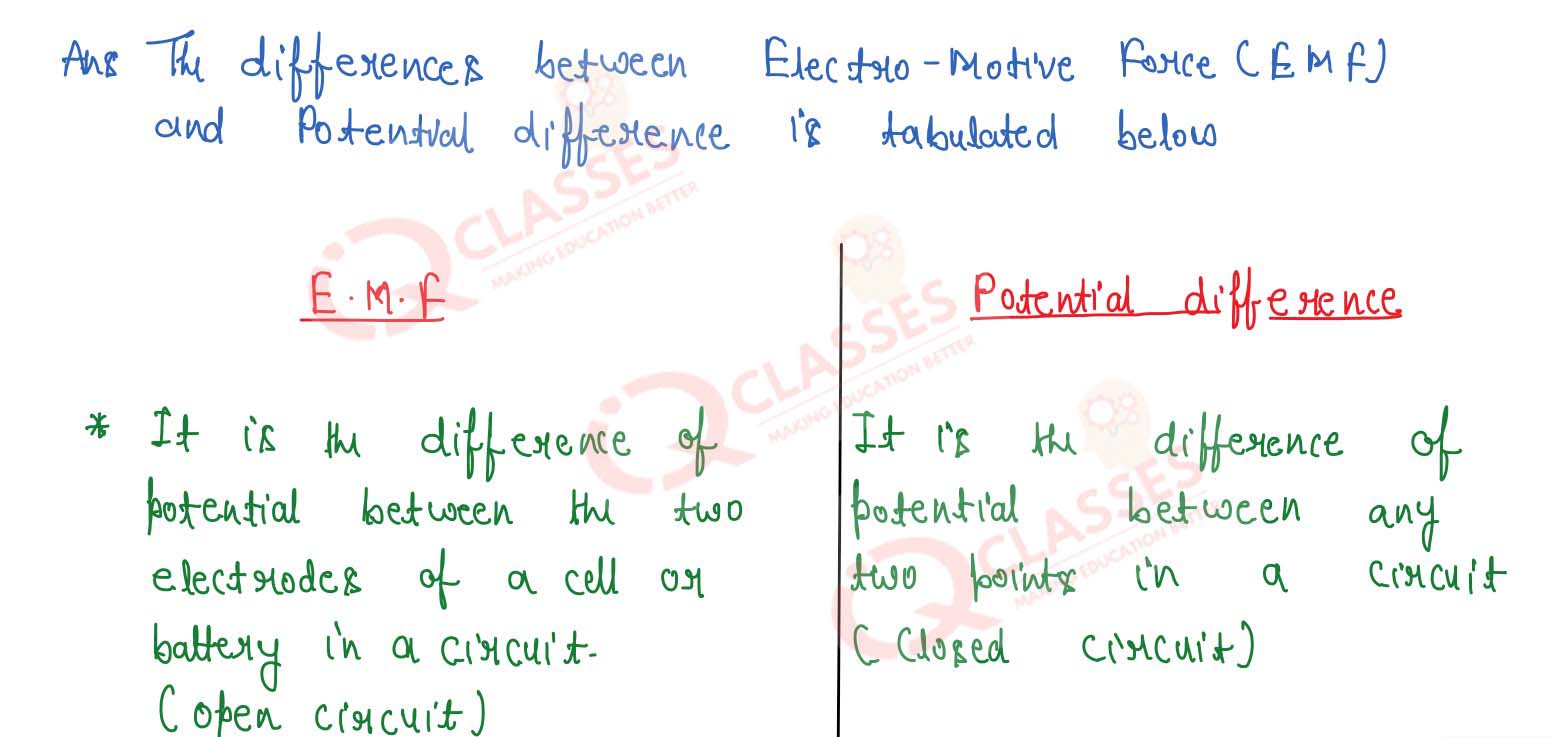 Ans The differences between Electro-Motive Force (EMF)
and Potential difference is tabulated below
E.M.F
Potential difference
* It is the difference of
potential between the two
electrodes of a cell or
battery in a circuit.
(open circuit)
It is the difference of
potential between any
two points in a circuit
(Closed circuit)
iQ CLASSES
MAKING EDUCATION BETTER
iQ CLASSES
MAKING EDUCATION BETTER
iQ CLASSES
MAKING EDUCATION BETTER